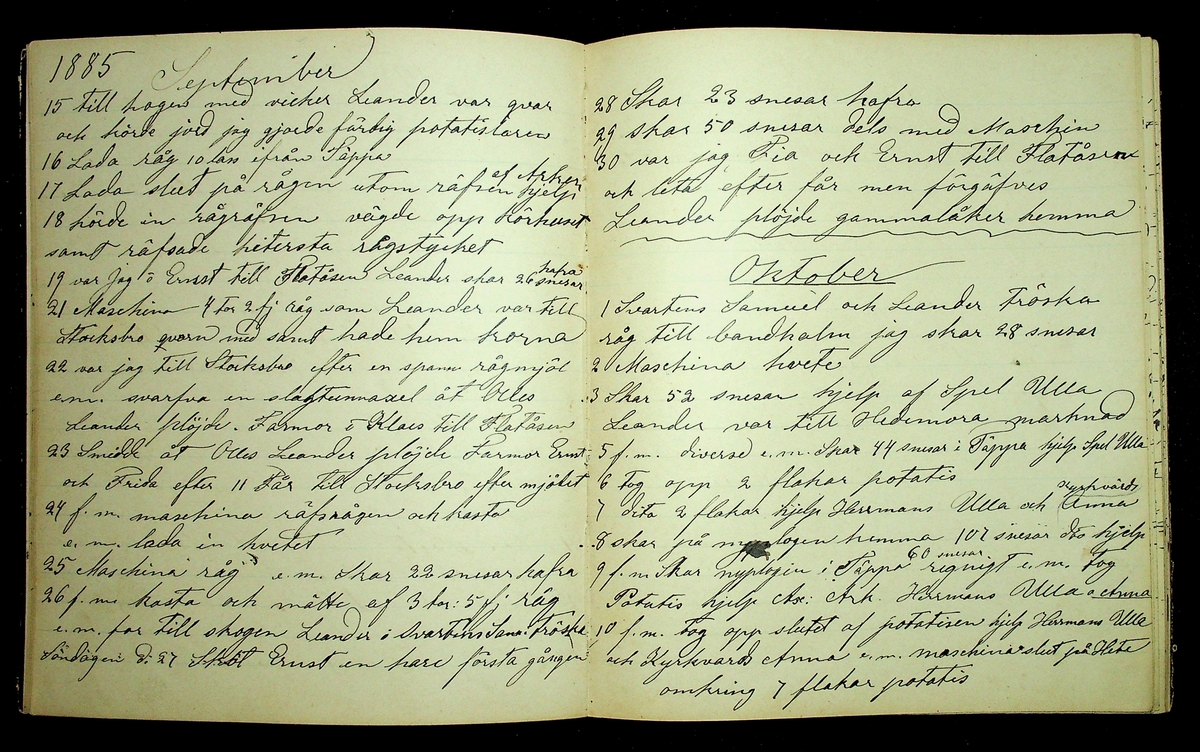 1885 September
15 till hogen med vicker Leander var qvar
och körde jord jag gjorde färdig potatislaren
16 Lada råg 10 lass ifrån Täppa
17 Lada slut på rågen utom räfsen hjelp
af Arker
18 körde in rågräfsen vägde opp Korhuset
samt räfsade hitersta rågstycket
19 var jag o Ernst till Flatåsen Leander skar 26 snesar
hafra
21 Maschina 4 tor 2 fj råg som Leander var till
Stocksbro qvarn med samt hade hem korna
22 var jag till Stocksbro efter en spann rågmjöl
em. svarfva en slagtunnaxel åt Olles
Leander plöjde. Farmor o Klaes till Flatåsen
23 Smidde åt Olles Leander plöjde Farmor Ernst
och Frida efter 11 Får till Stocksbro efter mjölet
24 f. m. maschina räfsrågen och kasta
e. m. lada in hvetet
25 Maschina råg e. m. Skar 22 snesar hafra
26 f. m. kasta och mätte af 3 tor: 5 fj råg
e. m. for till skogen Leander o Svartens Sam. tröska
Söndagen d: 27 Sköt Ernst en hare första gången
28 Skar 23 snesar hafra
29 skar 50 snesar dels med Maschin
30 var jag Fia och Ernst till Flatåsen
och leta efter får men förgäfves
Leander plöjde gammalåker hemma
Oktober
1 Svartens Samuel och Leander Tröska
råg till bandhalm jag skar 28 snesar
2 Maschina hvete
3 Skar 52 snesar hjelp af Spel Ulla
Leander var till Hedemora marknad
5 f. m. diverse e. m. Skar 44 snesar i Täppa hjelp Spel Ulla
6 tog opp 2 flakar potatis
7 dito 2 flakar hjelp Herrmans Ulla och Anna
Kyrkvärds
8 skar på nyplogen hemma 107 snesar dös hjelp
9 f. m Skar nyplogen i Täppa 60 snesar regnigt e. m. tog
Potatis hjelp Ax: Ark. Herrmans Ulla o Anna
10 f. m. tog opp slutet af potatisen hjelp Herrmans Ulla
och Kyrkvards Anna e. m. maschina slut på Hvete
omkring 7 flakar potatis